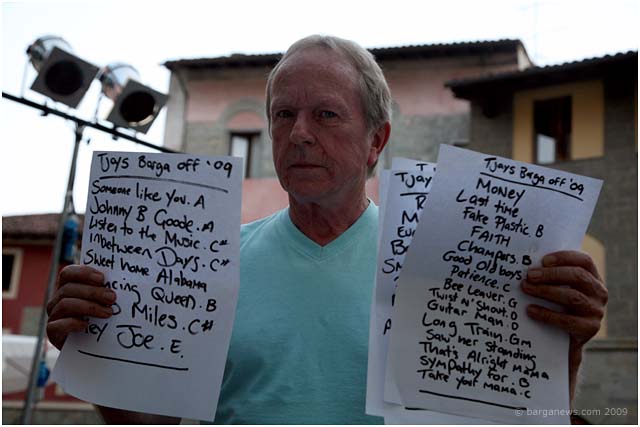 Tjays Barga off '09
Someone like you. A
Johnny B Goode. A
Listen to the Music. C#
inbetween Days. C#
Sweet Home Alabama
Queen. B
Miles. C#
Joe. E.
TJay
Tjays Barga off '09
Money
Last time
Fake Plastic. B
FAITH
Champers. B
Good Old boys
Patience. C
Bee Leaver. G
Twist N' Shout. D
Guitar Man. D
Long Train. Gm
Saw her Standing
That's Alright Mama
Sympathy For. B
Take your Mama. C
© barganews.com 2009